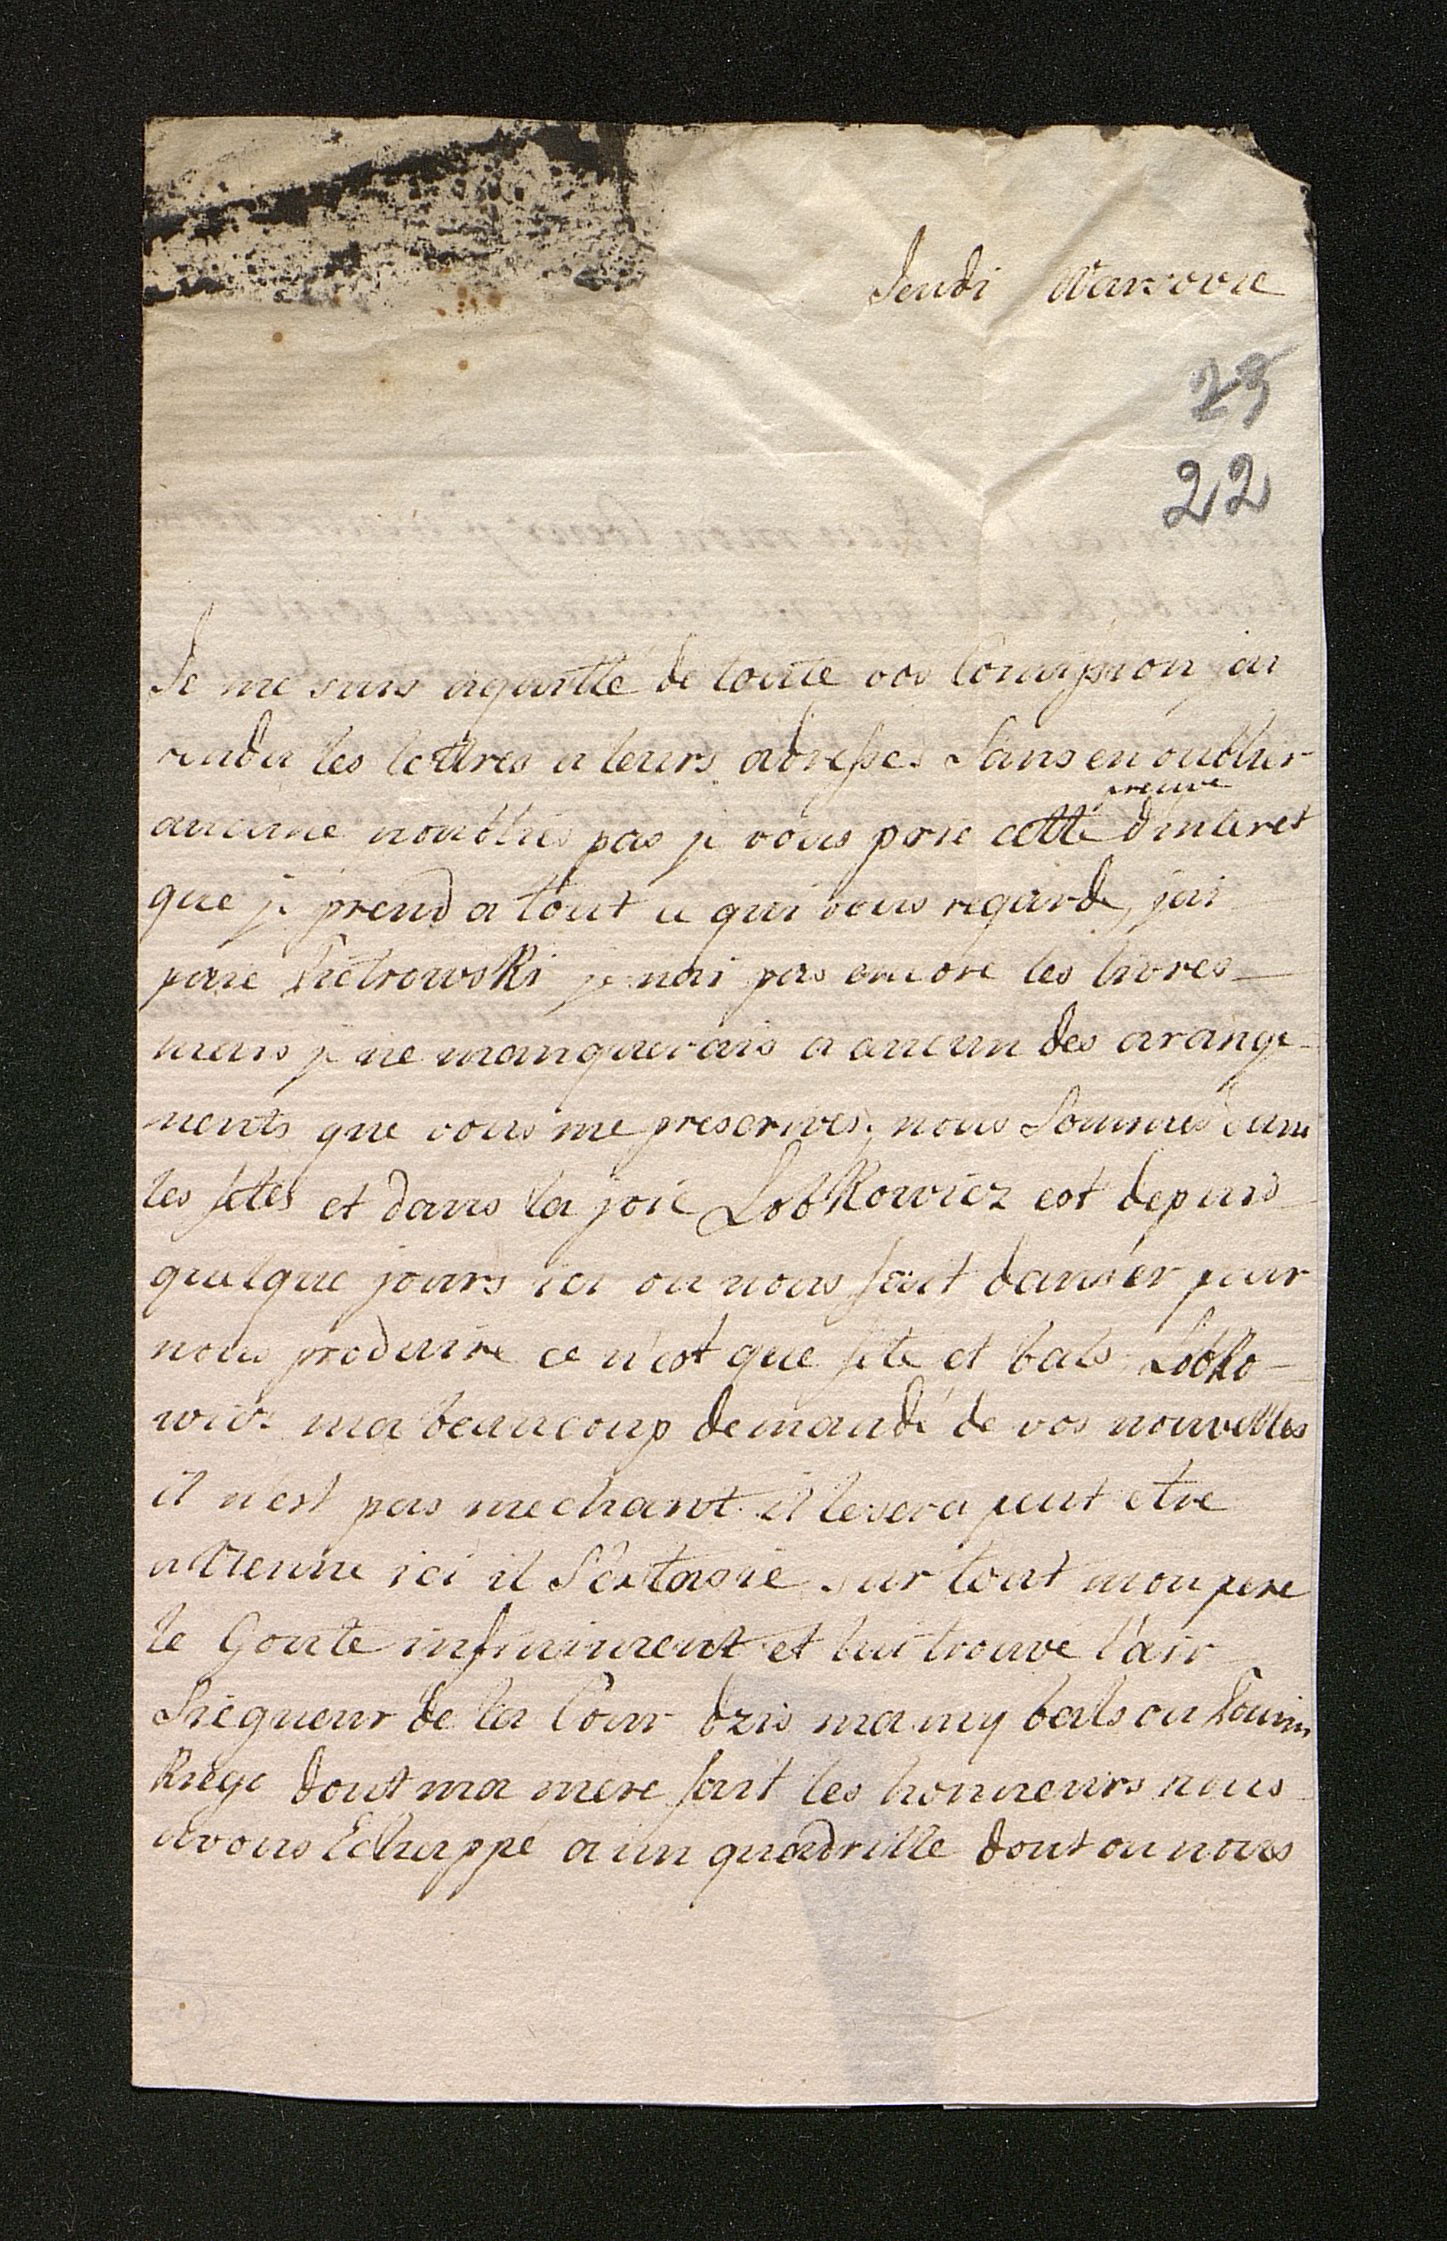 Jeudi Warsovie
23
22
Je me suis aquitté de toute vos Comission jai
rendu les lettres a leurs adresses Sans en oublier
aucune noubliés pas je vous prie cette preuve dinteret
que je prend a tout ce qui vous regarde, jai
paié Pietrowski je nai pas encore les livres
mais je ne manquerais a aucun des arange-
ments que vous me prescrives. nous Sommes dans
les fetes et dans la joie Lobkowicz est depuis
quelque jours ici on nous fait danser pour
nous produire ce n'est que fete et bals Lobko-
wicz ma beaucoup demandé de vos nouvelles
il n'est pas mechant il lesera peut etre
a Vienne ici il S'extasie sur tout mon pere
le Goute infiniment et lui trouve l'air
Siegneur de la Cour dzis mamy bals au
dont ma mere fait les honneurs nous
avons Echappé a un quadrille dont on nous